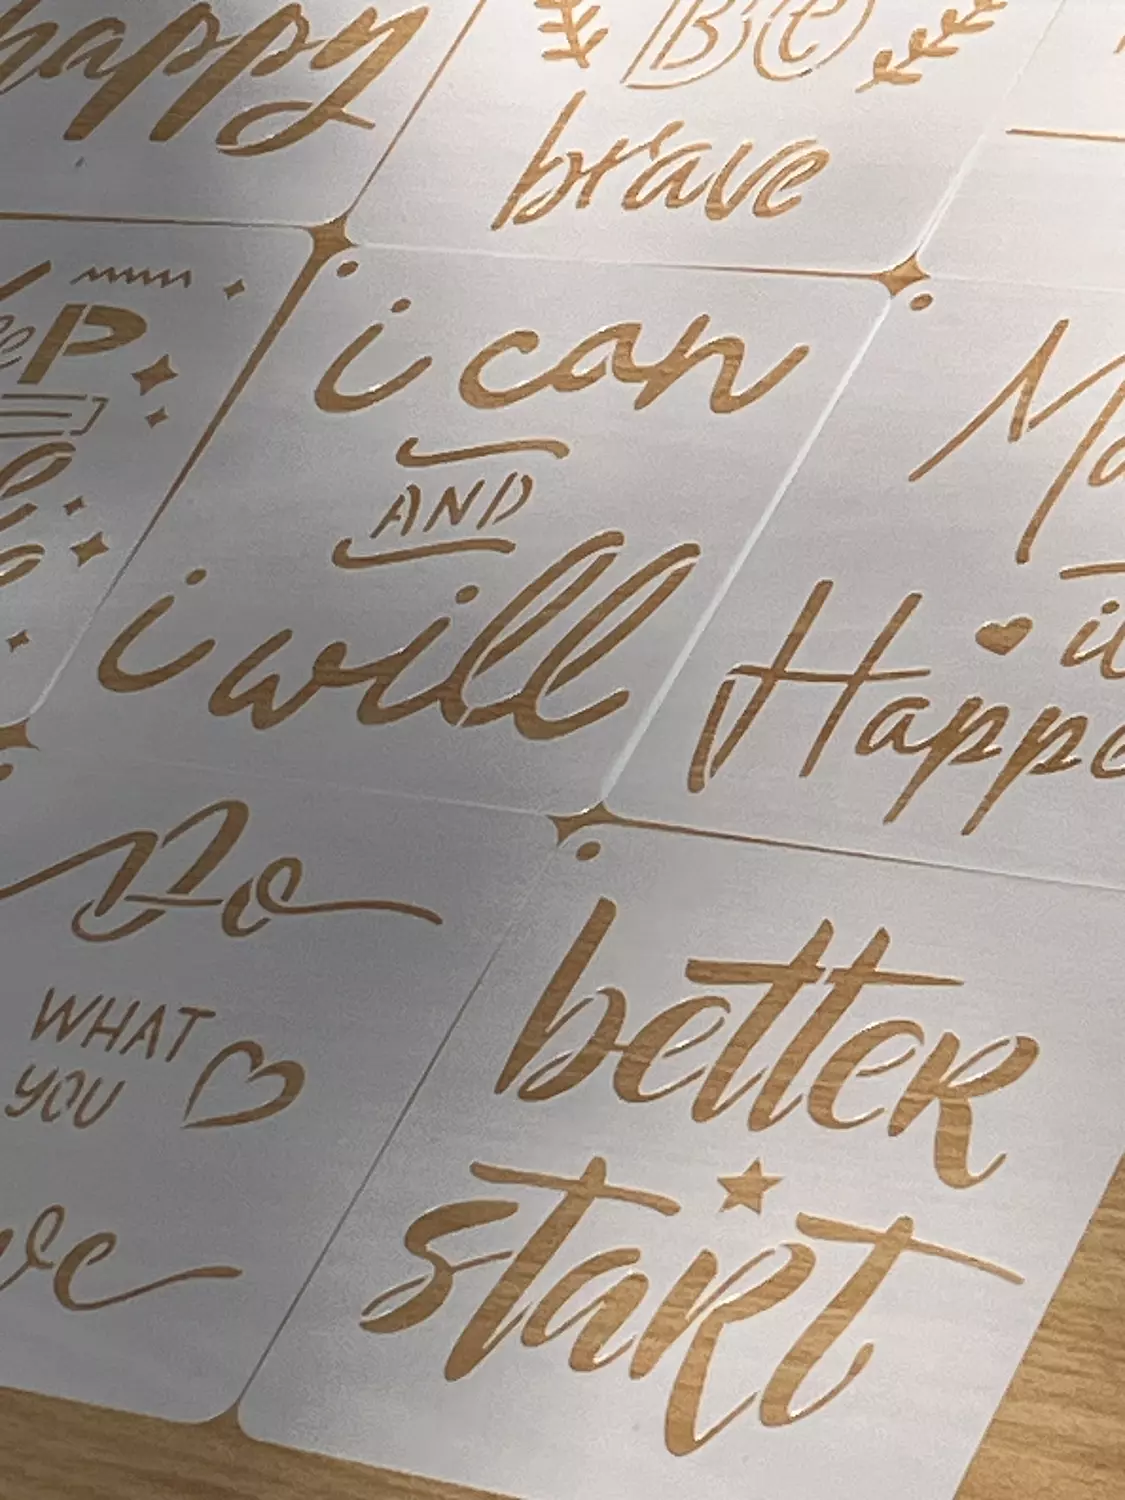 happy
BE
brave
i can
AND
i will
it
Do
WHAT
YOU
better
start